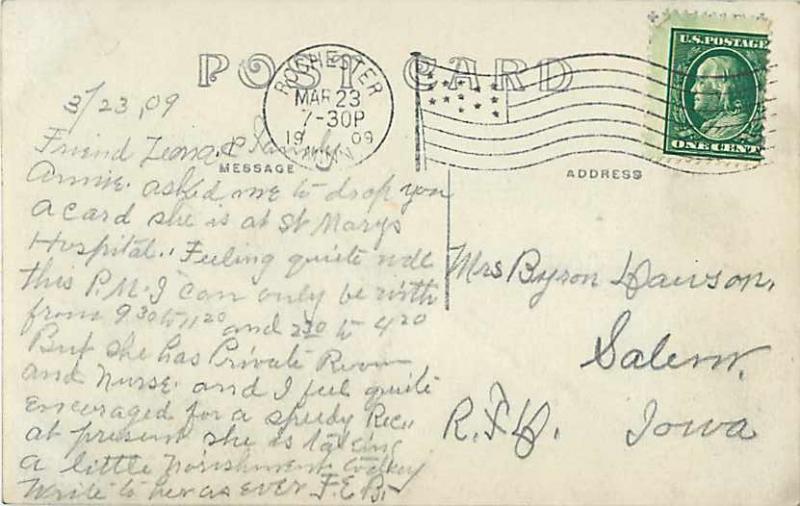 POST CARD
ROCHESTER
MAR 23
7-30P
1909
MINN.
U.S. POSTAGE
ONE CENT
MESSAGE
ADDRESS
3/23,09
Friend Leona & Family
Annie asked me to drop you
a card she is at St Marys
Hospital. Feeling quite well
this P.M. I can only be with
from 9 30 to 11 20 and 2 30 to 4 20
But she has Private Room
and Nurse. and I feel quite
encouraged for a speedy Rec..
at present she is taking
a little norishment today
Write to her as ever F.E.B.
Mrs Byron Dawson,
Salem.
R.F.D. Iowa